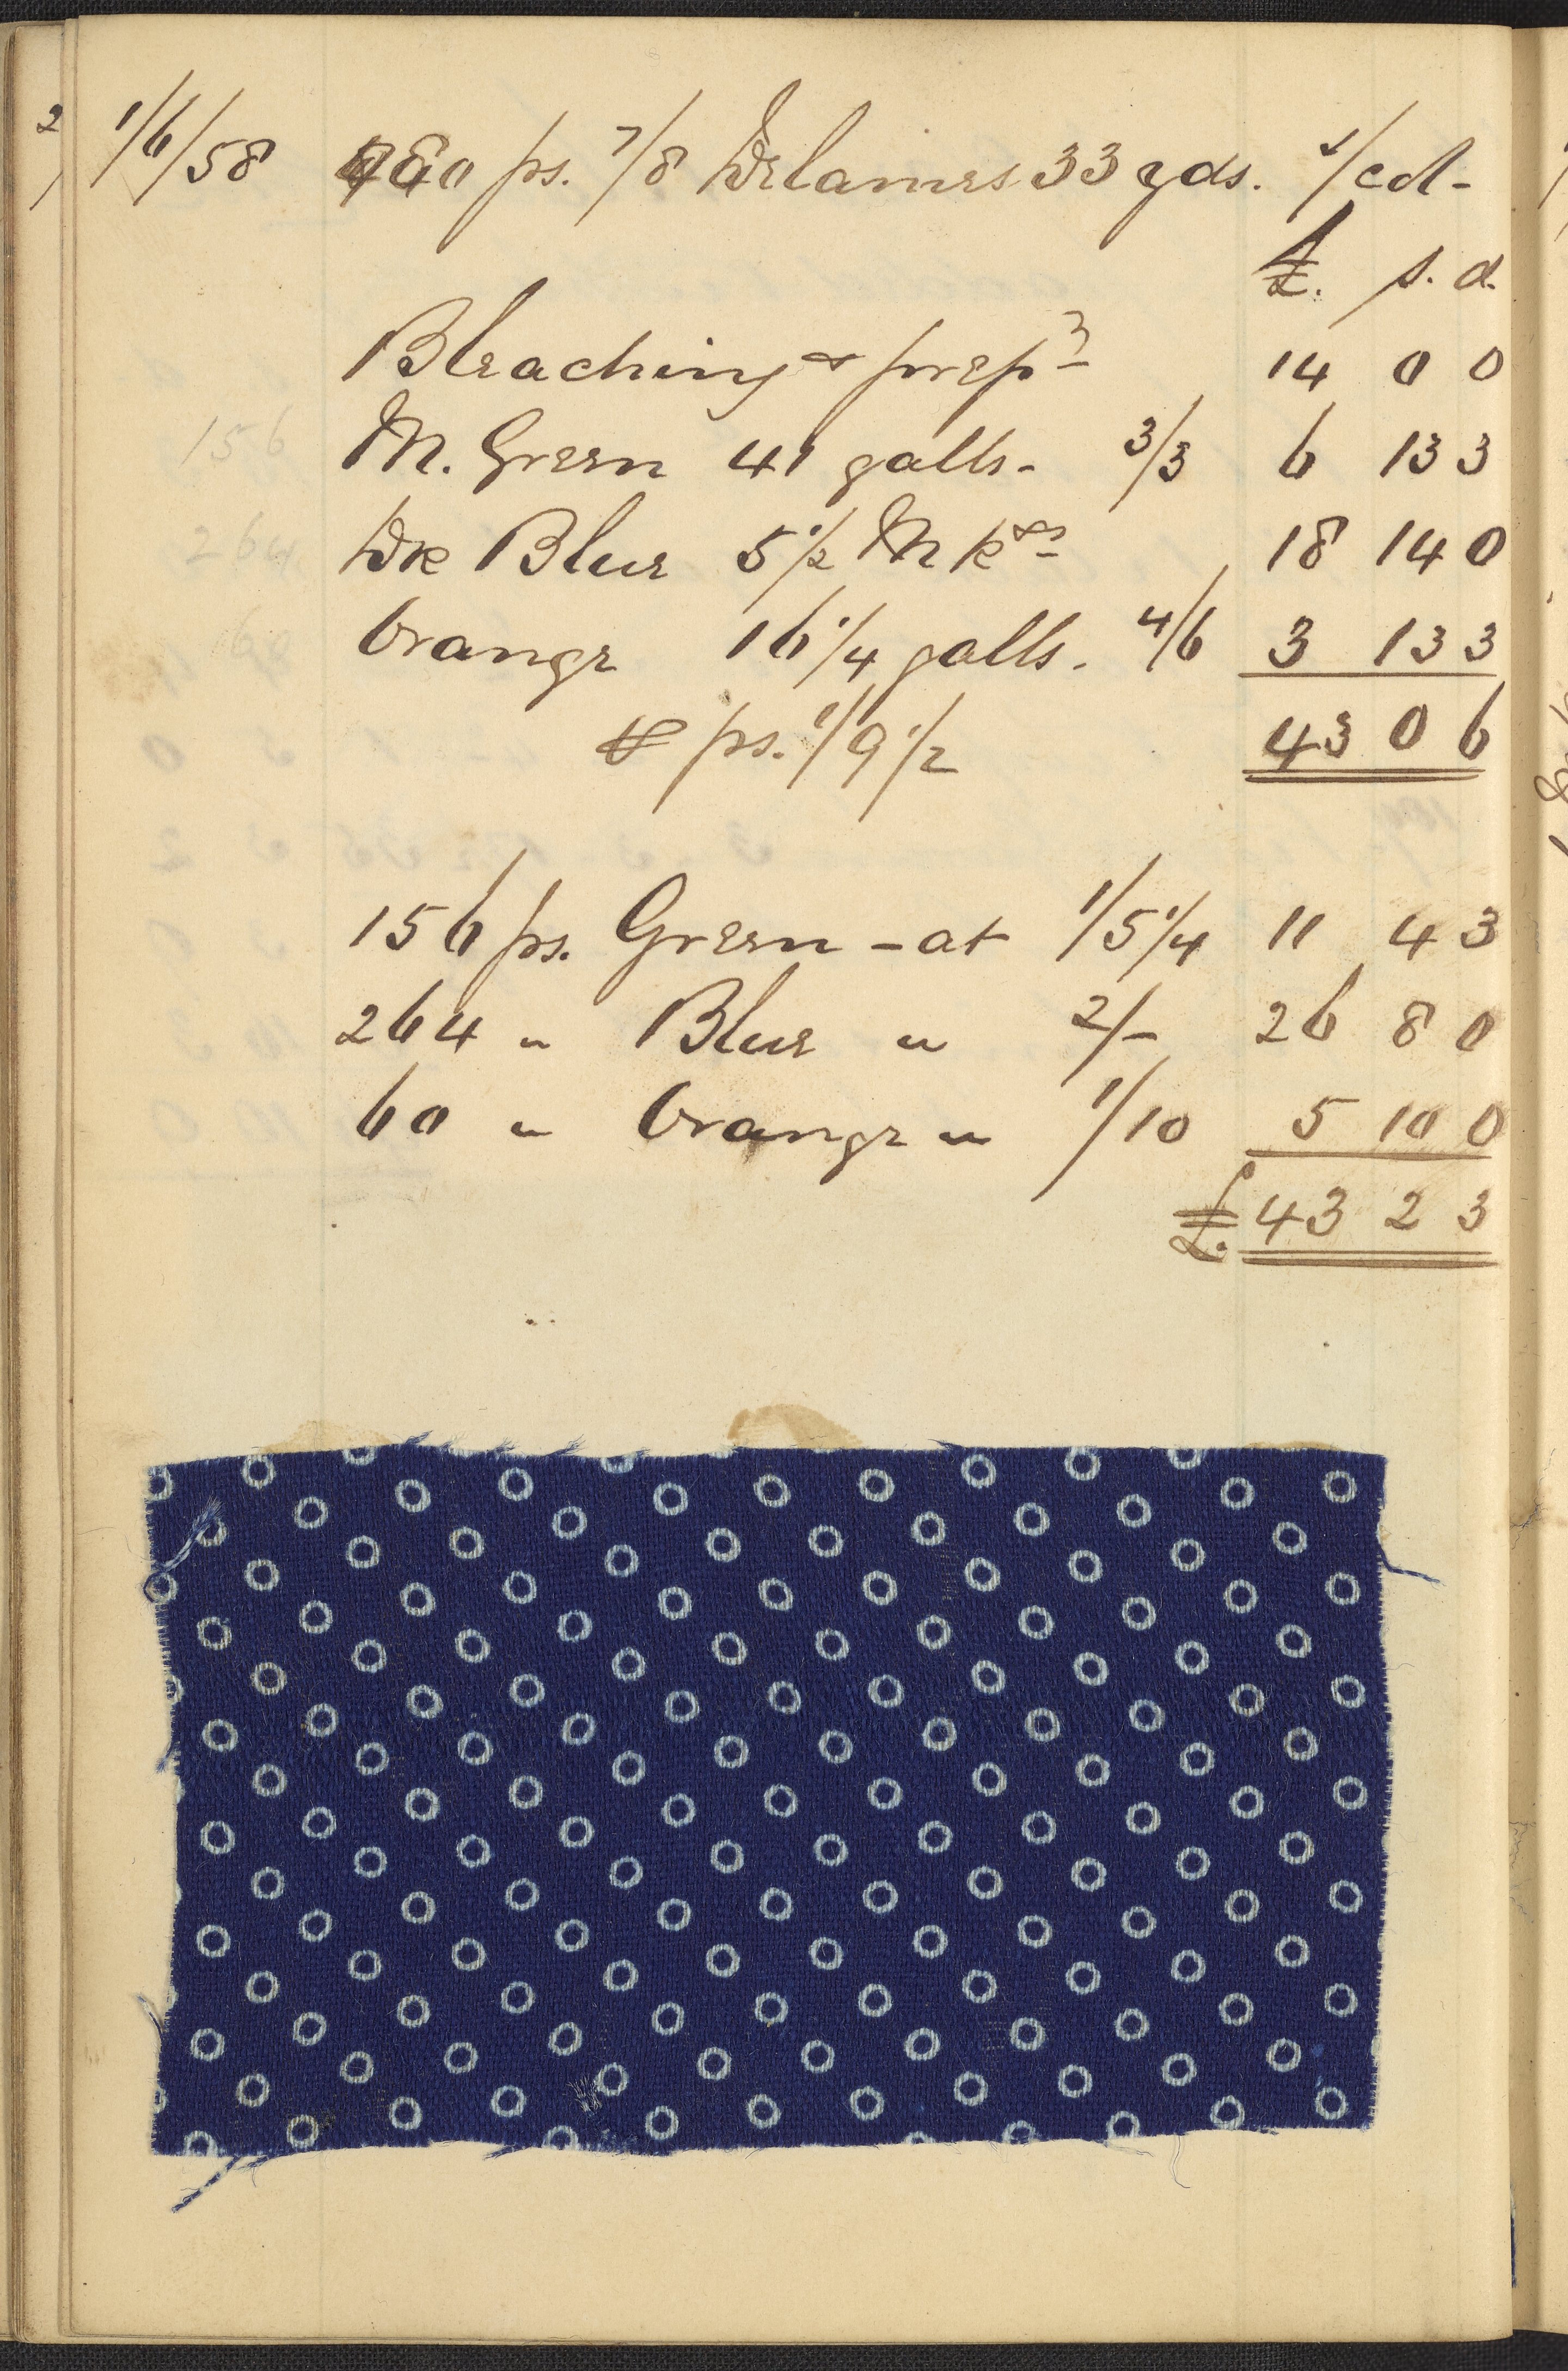 1/6/58 480 ps. 7/8 Delaines 33 yds. 1/cd-
£. s. d.
Bleaching & prep^g 14 0 0
M. Green 41 galls. 3/3 6 13 3
Dk Blue 5 1/2 M k^s 18 14 0
Orange 16 1/4 galls. 4/6 3 13 3
℔ ps. 1/9 1/2 43 0 6
156 ps. Green - at 1/5 1/4 11 4 3
264 " Blue " 2/- 26 8 0
60 " Orange " 1/10 5 10 0
£. 43 2 3
156
264
60